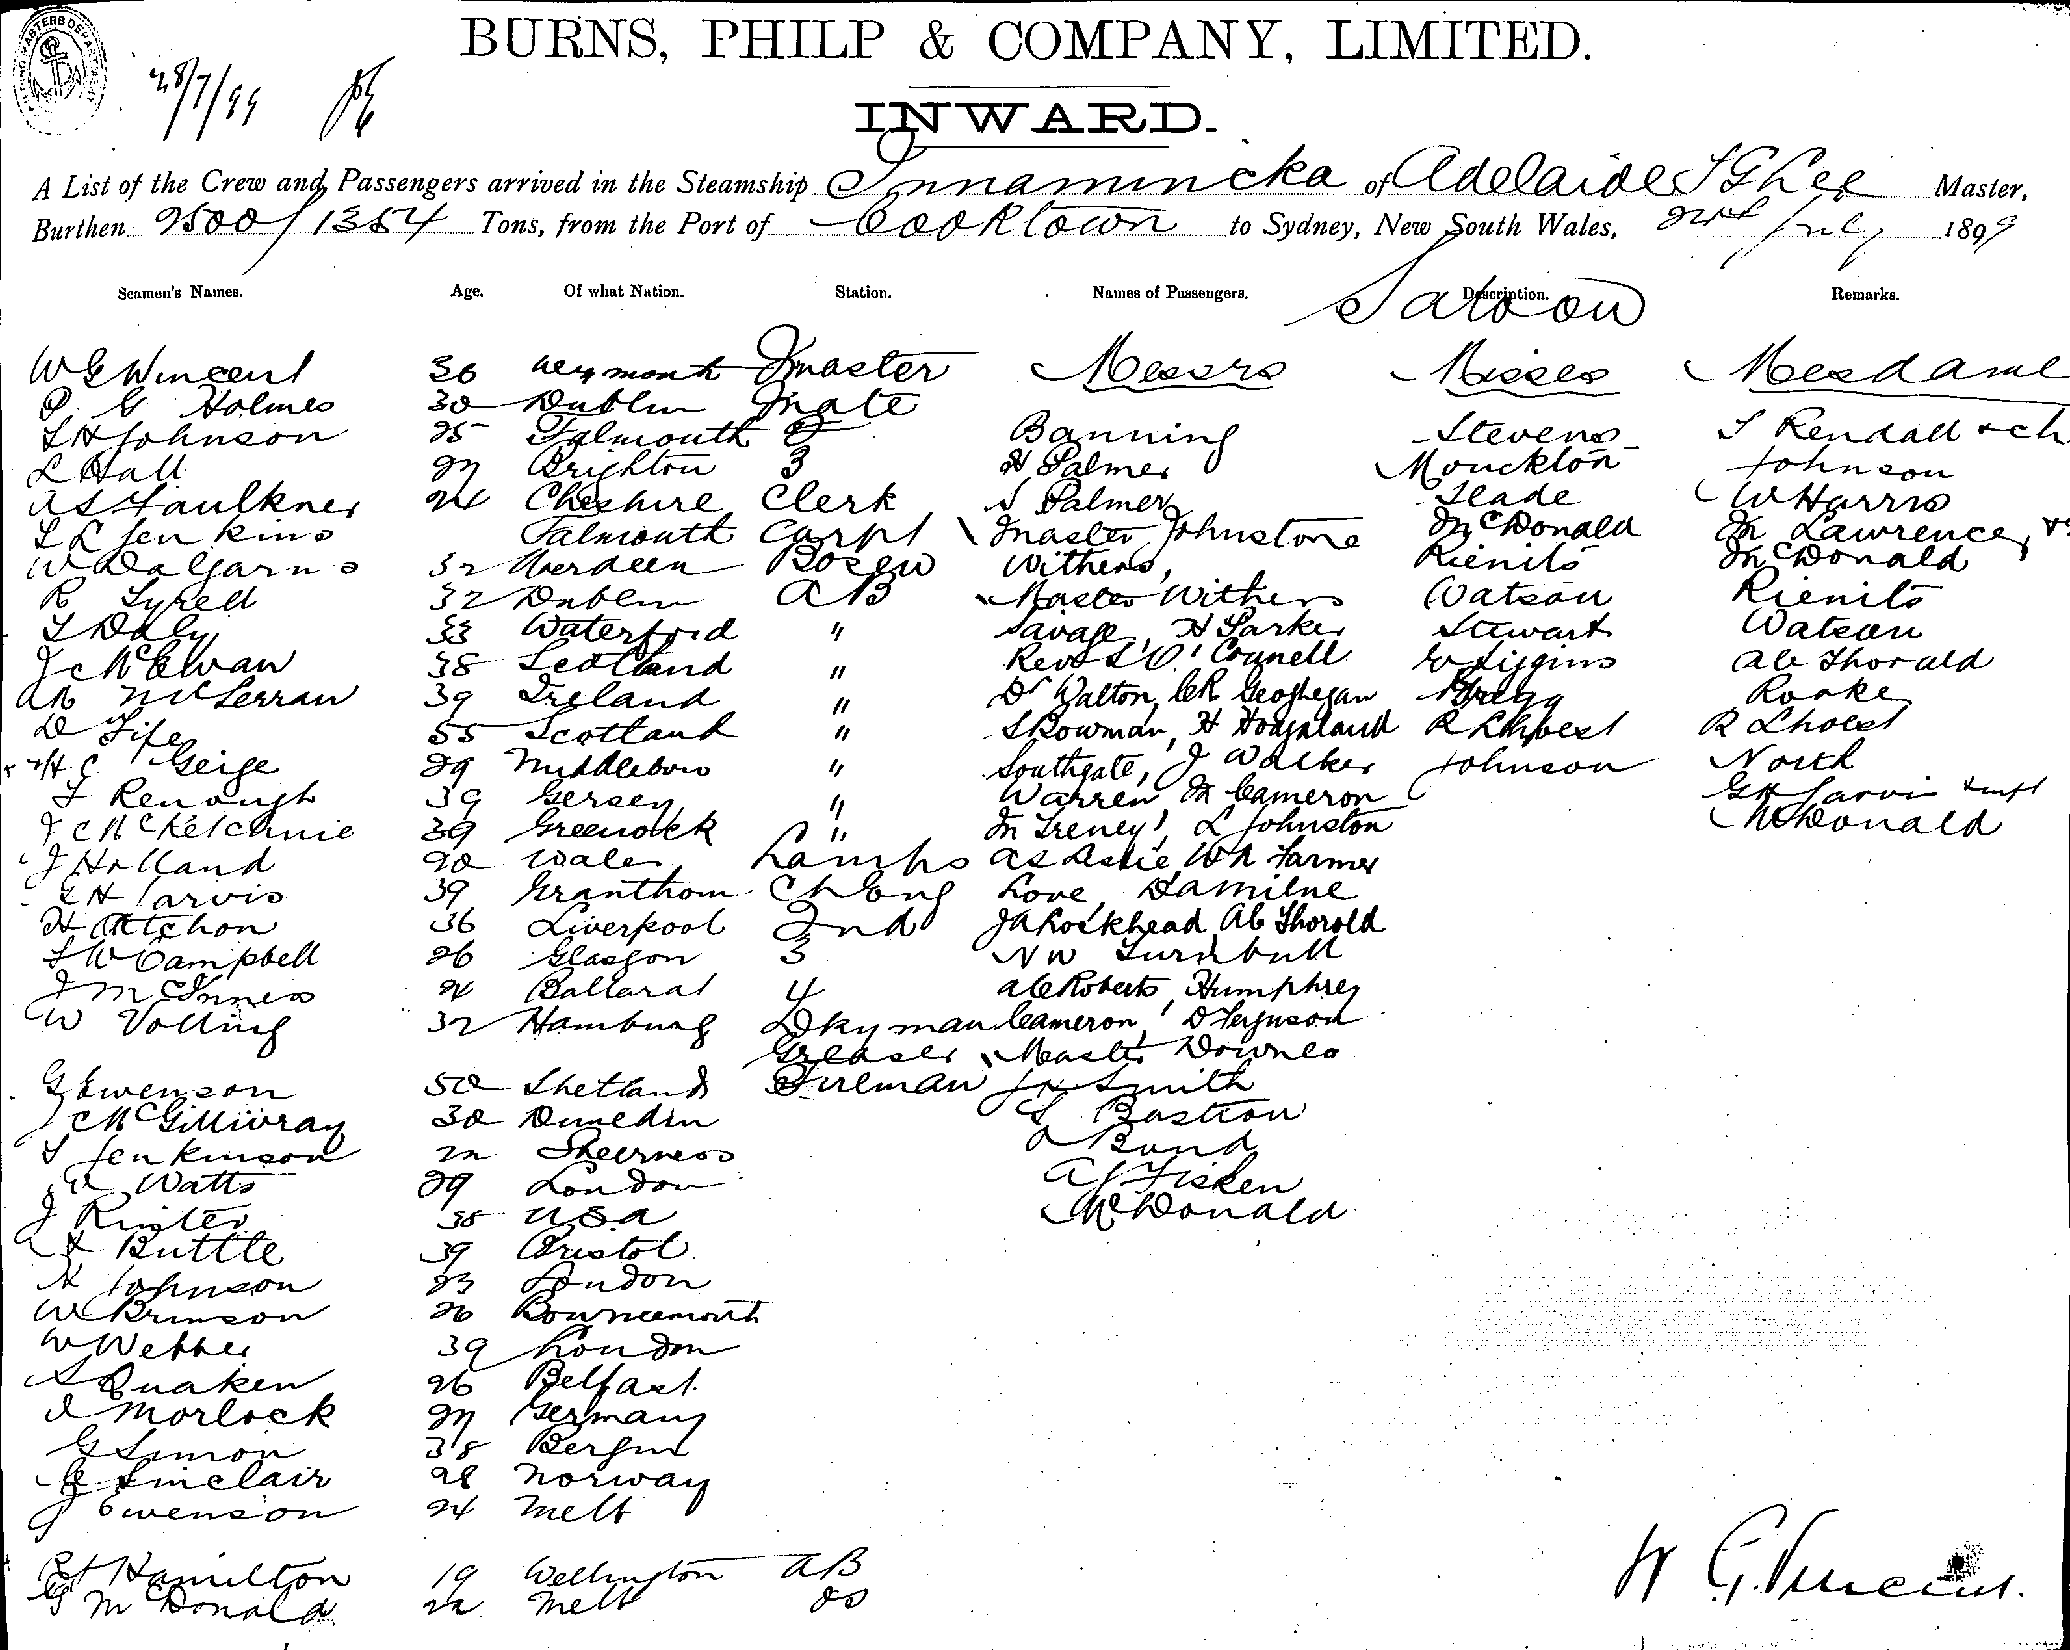 BURNS, PHILP & COMPANY, LIMITED.
28/7/99
INWARD.
A List of the Crew and Passengers arrived in the Steamship Innamincka of Adelaide Master,
Burthen 2500/1354 Tons, from the Port of Cooktown to Sydney, New South Wales, July 1899
Seamen's Names. Age. Of what Nation. Station. Names of Passengers. Description. Remarks.
Saloon
W G Vincent 36 Weymouth Master Messrs Misses Mesdame
P. G Holmes 30 Dublin Mate
Johnson 25 Falmouth 2 Banning Stevens Rendall & ch
L Hall 27 Brighton 3 H Palmer Mouckton Johnson
A S Faulkner 24 Cheshire Clerk S Palmer Slade W Harris
Jenkins Falmouth Carpt Master Johnstone McDonald M Lawrence
W Dalgarno 32 Aberdeen Bosen Withers, Rienits McDonald
R Tyrell 32 Dublin AB Master Withers Watson Rienits
T Daly 33 Waterford " Savage, H Parker Stewart Watson
J McEwan 38 Scotland " Revd O'Connell Liggins Thorald
39 Ireland " Dr Walton, Geoghegan Gregg Rooke
D Fife 55 Scotland " Bowman, H R Lhoest R Lhoest
C Geige 29 Middlebow " Southgate, J Walker Johnson North
Renough 39 Gersey " Warren, M Cameron G H Jarvis & inft
J McKetchnie 39 Greenock " L Johnston McDonald
J Holland 20 Wales Lamps Farmer
G H Jarvis 39 Grantham Ch Eng Love, Milne
H Aitchon 36 Liverpool 2nd J A Lockhead, Thorold
Campbell 26 Glasgow 3 N W Turnbull
J McInnes 24 Ballarat 4 Roberts, Humphrey
W Volling 32 Hamburg Dkyman Cameron, D Ferguson
Greaser Master Downes
G Ewenson 50 Shetland Fireman Smith
J McGillivray 30 Dunedin Bastion
Jenkinson 22 Sheerness Bond
Watts 29 London A J Fisken
J 38 USA McDonald
Buttle 39 Bristol
Johnson 23 London
W Brinson 26 Bournemouth
W Webber 39 London
Quaken 26 Belfast
Morlock 27 Germany
G Simon 38 Bergen
Sinclair 28 Norway
J Swenson 24 Melb
Hamilton 19 Wellington AB
G McDonald 22 Melb OS
W G. Vincent.